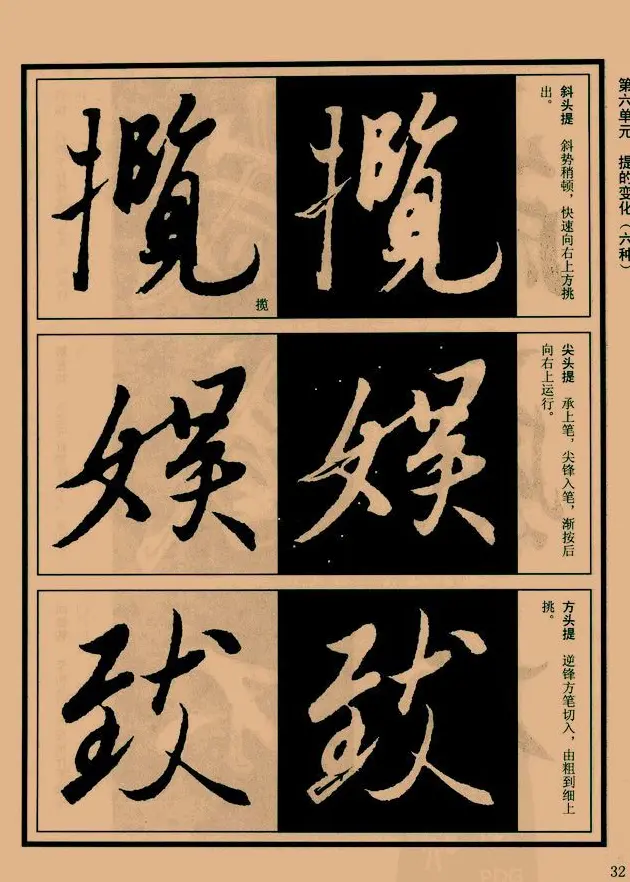 第六单元 提的变化（六种）
斜头提 斜势稍顿，快速向右上方挑
出。
揽
揽
揽
尖头提 承上笔，尖锋入笔，渐按后
向右上运行。
娱
娱
方头提 逆锋方笔切入，由粗到细上
挑。
致
致
32